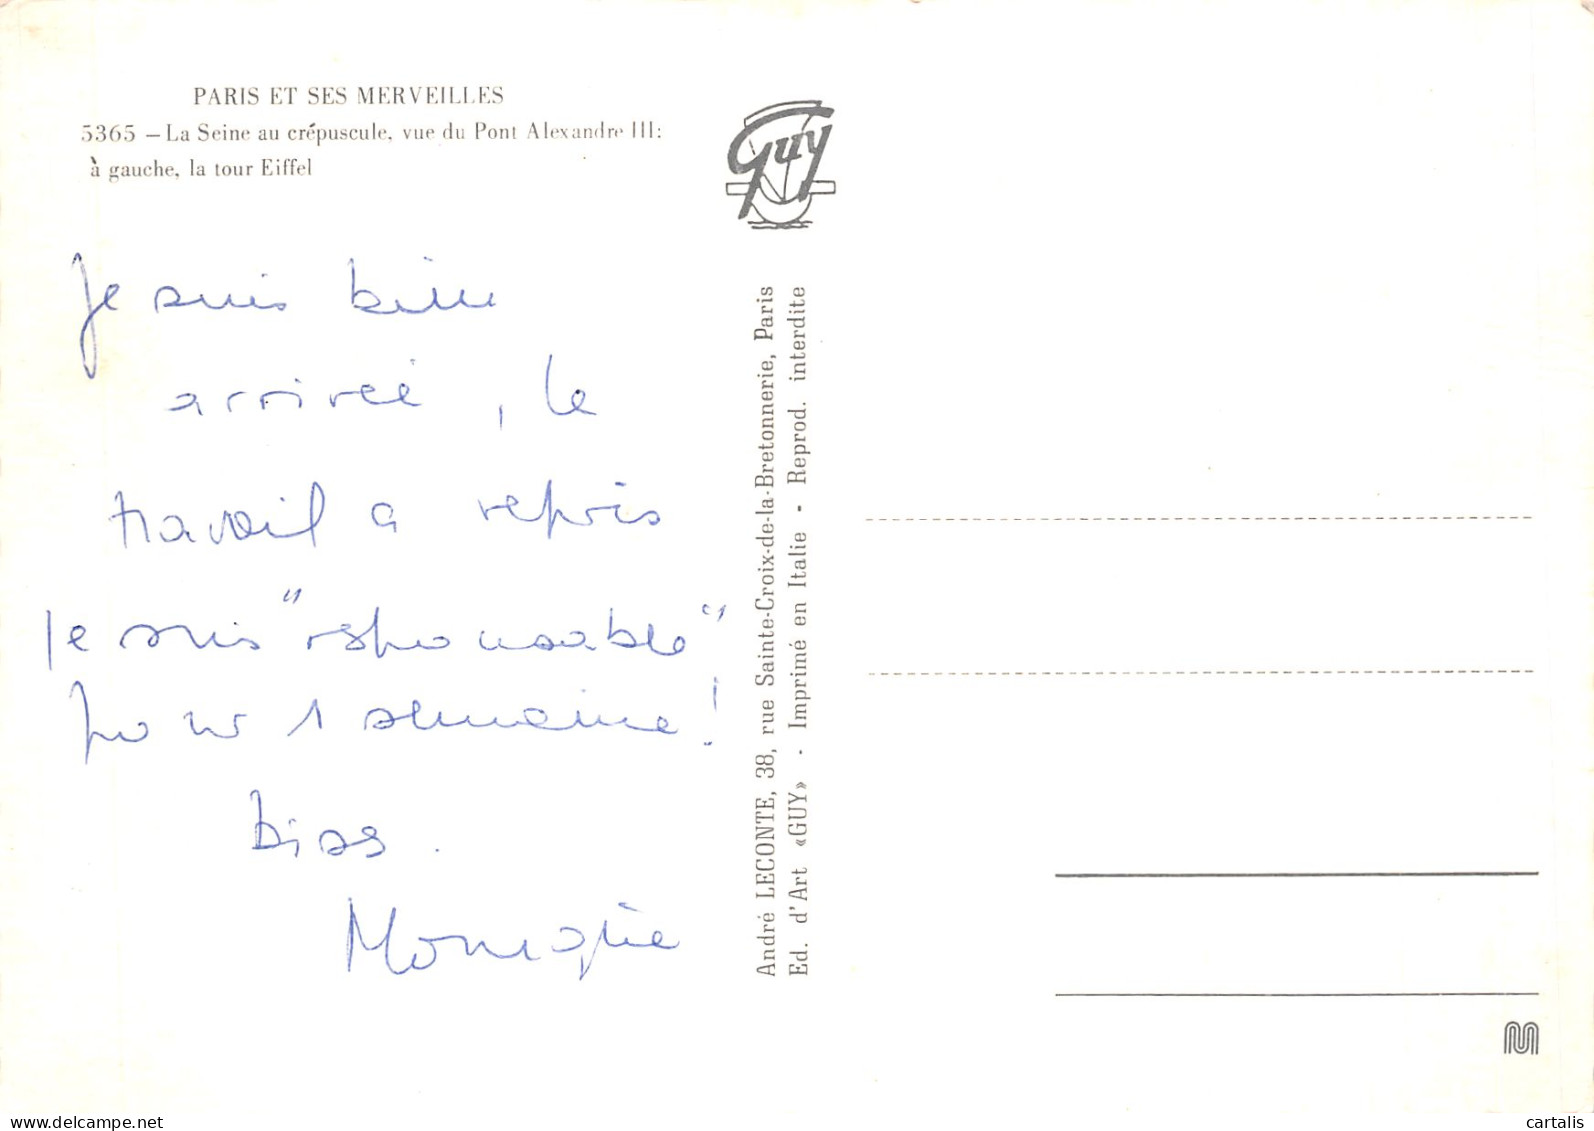 PARIS ET SES MERVEILLES
5365 — La Seine au crépuscule, vue du Pont Alexandre III:
à gauche, la tour Eiffel
Guy
Je suis bien
arrivée, le
travail a repris
Je suis "responsable"
pour 1 semaine!
bises.
Monique
André LECONTE, 38, rue Sainte-Croix-de-la-Bretonnerie, Paris
Ed. d'Art «GUY» - Imprimé en Italie - Reprod. interdite
delcampe.net
cartalis